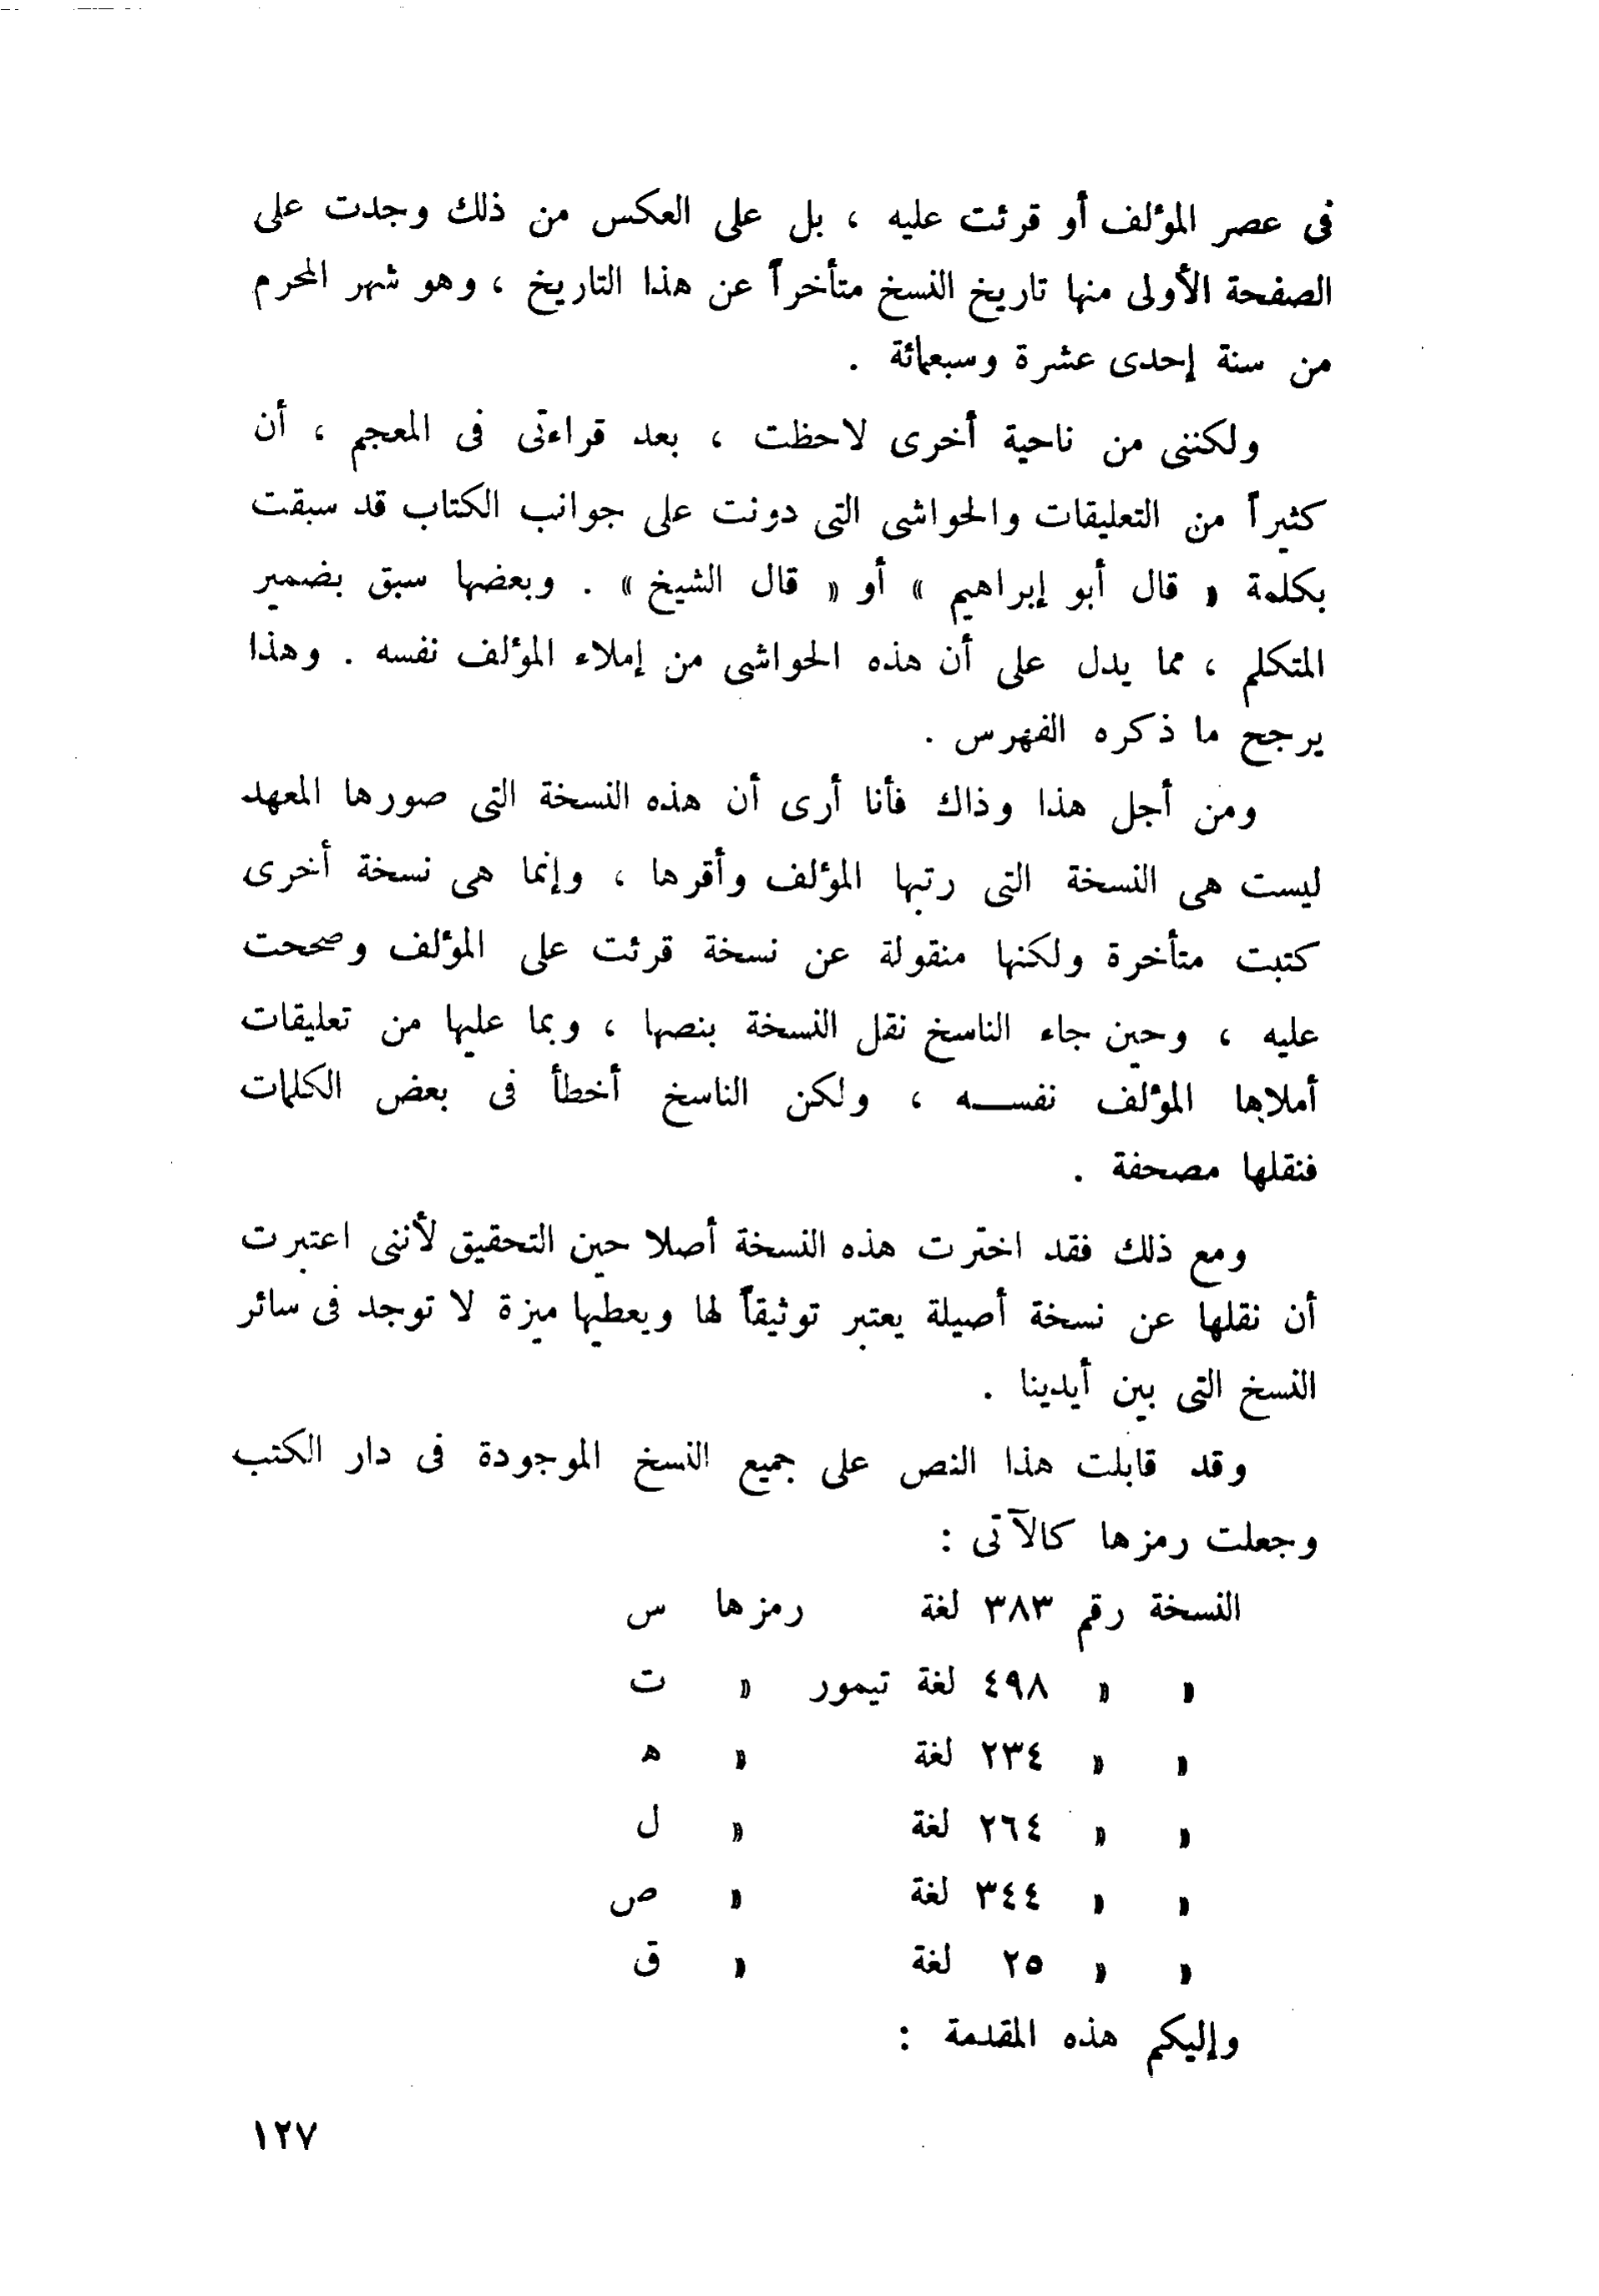 فى عصر المؤلف أو قرئت عليه ، بل على العكس من ذلك وجدت على
الصفحة الأولى منها تاريخ النسخ متأخراً عن هذا التاريخ ، وهو شهر المحرم
من سنة إحدى عشرة وسبعمائة .
ولكننى من ناحية أخرى لاحظت ، بعد قراءتى فى المعجم ، أن
كثيراً من التعليقات والحواشى التى دونت على جوانب الكتاب قد سبقت
بكلمة « قال أبو إبراهيم » أو « قال الشيخ » . وبعضها سبق بضمير
المتكلم ، مما يدل على أن هذه الحواشى من إملاء المؤلف نفسه . وهذا
يرجح ما ذكره الفهرس .
ومن أجل هذا وذاك فأنا أرى أن هذه النسخة التى صورها المعهد
ليست هى النسخة التى رتبها المؤلف وأقرها ، وإنما هى نسخة أخرى
كتبت متأخرة ولكنها منقولة عن نسخة قرئت على المؤلف وصححت
عليه ، وحين جاء الناسخ نقل النسخة بنصها ، وبما عليها من تعليقات
أملاها المؤلف نفســه ، ولكن الناسخ أخطأ فى بعض الكلمات
فنقلها مصحفة .
ومع ذلك فقد اخترت هذه النسخة أصلا حين التحقيق لأننى اعتبرت
أن نقلها عن نسخة أصيلة يعتبر توثيقاً لها ويعطيها ميزة لا توجد فى سائر
النسخ التى بين أيدينا .
وقد قابلت هذا النص على جميع النسخ الموجودة فى دار الكتب
وجعلت رمزها كالآتى :
النسخة رقم ٣٨٣ لغة رمزها س
» » ٤٩٨ لغة تيمور » ت
» » ٢٣٤ لغة » ه
» » ٢٦٤ لغة » ل
» » ٣٤٤ لغة » ص
» » ٢٥ لغة » ق
وإليكم هذه المقدمة :
١٢٧